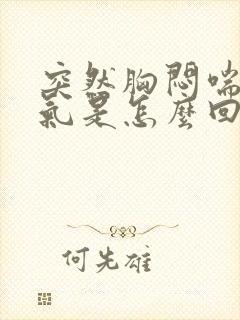 突然胸悶喘
氣是怎麼回
何先雄